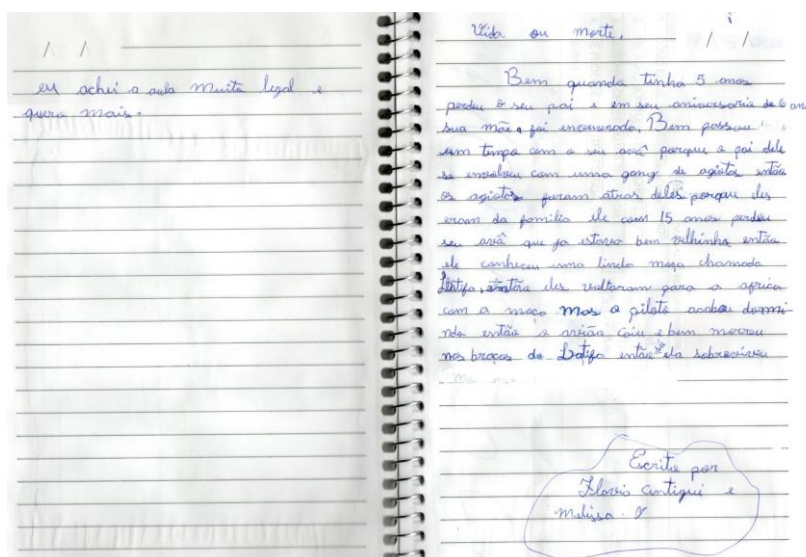 / /
eu achei a aula muito legal e
quero mais.
Vida ou morte. / /
Bem quando tinha 5 anos
perdeu o seu pai e em seu aniversario de 6 an
sua mãe foi Bem passou
um tempo com o seu avô porque o pai dele
se envolveu com uma gang de agiotas então
os agiotas foram atras deles porque eles
eram da familia ele com 15 anos perdeu
seu avô que ja estava bem velhinho então
ele conheceu uma linda moça chamada
Latifa, então eles voltaram para a africa
com a moça Mas o piloto acabou dormi-
ndo então o avião caiu e bem morreu
nos braços da Latifa então ela sobreviveu
Escrito por
Flavia e
Melissa.